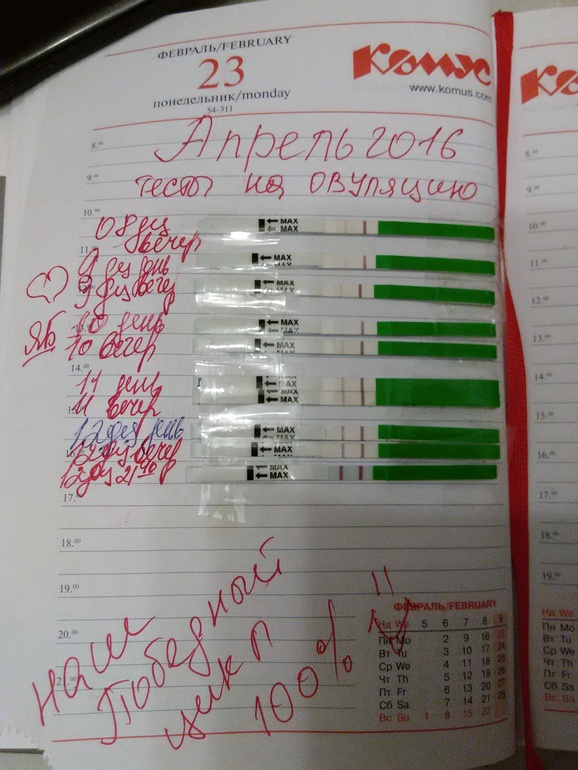 ФЕВРАЛЬ/FEBRUARY
23
понедельник/monday
54-311
Комус
www.komus.com
8.00
Апрель 2016
9.00
тесты на овуляцию
10.00
08 дц
вечер
← MAX
11.00
9 дц день
← MAX
9 дц вечер
← MAX
10 день
← MAX
ЯБ 10 вечер
← MAX
14.00
11 день
← MAX
11 вечер
← MAX
12 дц день
← MAX
12 дц вечер
← MAX
12 дц 21 40
← MAX
17.00
18.00
19.00
20.00
наш
Победный
цикл
100% !!
ФЕВРАЛЬ/FEBRUARY
Нд We 5 6 7 8 9
Пн Mo 2 9 16 23
Вт Tu 3 10 17 24
Ср We 4 11 18 25
Чт Th 5 12 19 26
Пт Fr 6 13 20 27
Сб Sa 7 14 21 28
Вс Su 1 8 15 22
8.00
9.00
10.00
11.00
12.00
13.00
14.00
15.00
16.00
17.00
18.00
19.00
Нд We
Пн Mo
Вт Tu
Ср We
Чт Th
Пт Fr
Сб Sa
Вс Su